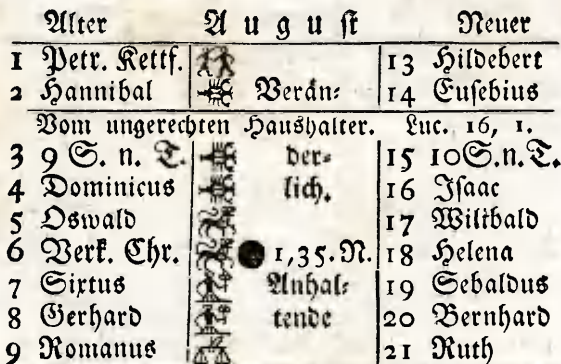 Alter Auguſt Neuer
1 Petr. Kettf. 13 Hildebert
2 Hannibal Verän⸗ 14 Euſebius
Vom ungerechten Haushalter. Luc. 16, 1.
3 9 S. n. T. der⸗ 15 10 S. n. T.
4 Dominicus lich. 16 Iſaac
5 Oswald 17 Wilibald
6 Verk. Chr. 1,35. N. 18 Helena
7 Sixtus Anhal⸗ 19 Sebaldus
8 Gerhard tende 20 Bernhard
9 Romanus 21 Ruth